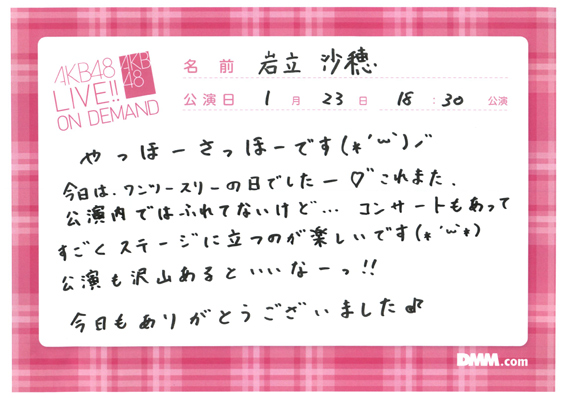 AKB48
LIVE!!
ON DEMAND
AKB
48
名前 岩立 沙穂
公演日 1月 23日 18:30 公演
やっほーさっほーです(*´ω`)ノ
今日は、ワンツースリーの日でしたー♡これまた、
公演内ではふれてないけど… コンサートもあって
すごくステージに立つのが楽しいです(*´ω`*)
公演も沢山あるといいなーっ!!
今日もありがとうございました♪
DMM.com